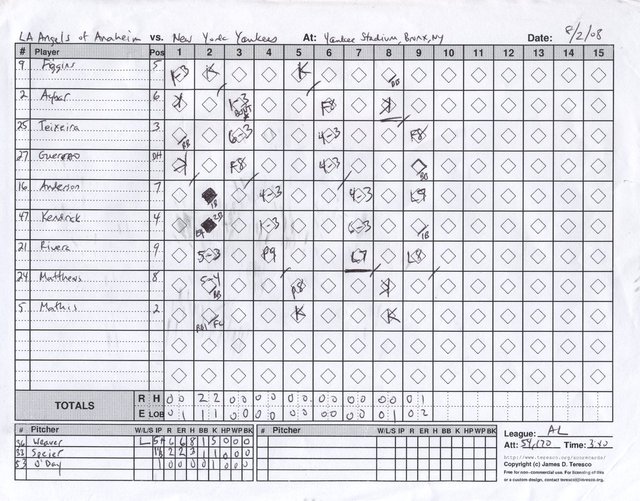 LA Angels of Anaheim vs. New York Yankees At: Yankee Stadium, Bronx, NY Date: 8/2/08
# Player Pos 1 2 3 4 5 6 7 8 9 10 11 12 13 14 15
9 Figgins 5 1-3 K K BB
2 Aybar 6 K 1-3 BUNT F8 K
25 Teixeira 3 BB 6-3 4-3 F8
27 Guerrero DH K F8 4-3 BB
16 Anderson 7 1B 4-3 4-3 L9
47 Kendrick 4 2B 1-3 6-3 1B
21 Rivera 9 5-3 P9 L7 L8
24 Matthews 8 5-4 BB P8 K
5 Mathis 2 FC K K
TOTALS R H 0 0 2 2 0 0 0 0 0 0 0 0 0 0 0 0 0 1
E LOB 0 1 1 1 0 0 0 0 0 0 0 0 0 0 0 1 0 2
# Pitcher W/L/S IP R ER H BB K HP WP BK # Pitcher W/L/S IP R ER H BB K HP WP BK
36 Weaver L 6 6 8 1 5 0 0 0
33 Speier 2 2 3 1 1 0 0 0
53 O'Day 1 0 0 0 0 1 0 0 0
League: AL
Att: 54,170 Time: 3:40
http://www.teresco.org/scorecards/
Copyright (c) James D. Teresco
Free for non-commercial use. For licensing of this
or a custom design, contact teresco@teresco.org.